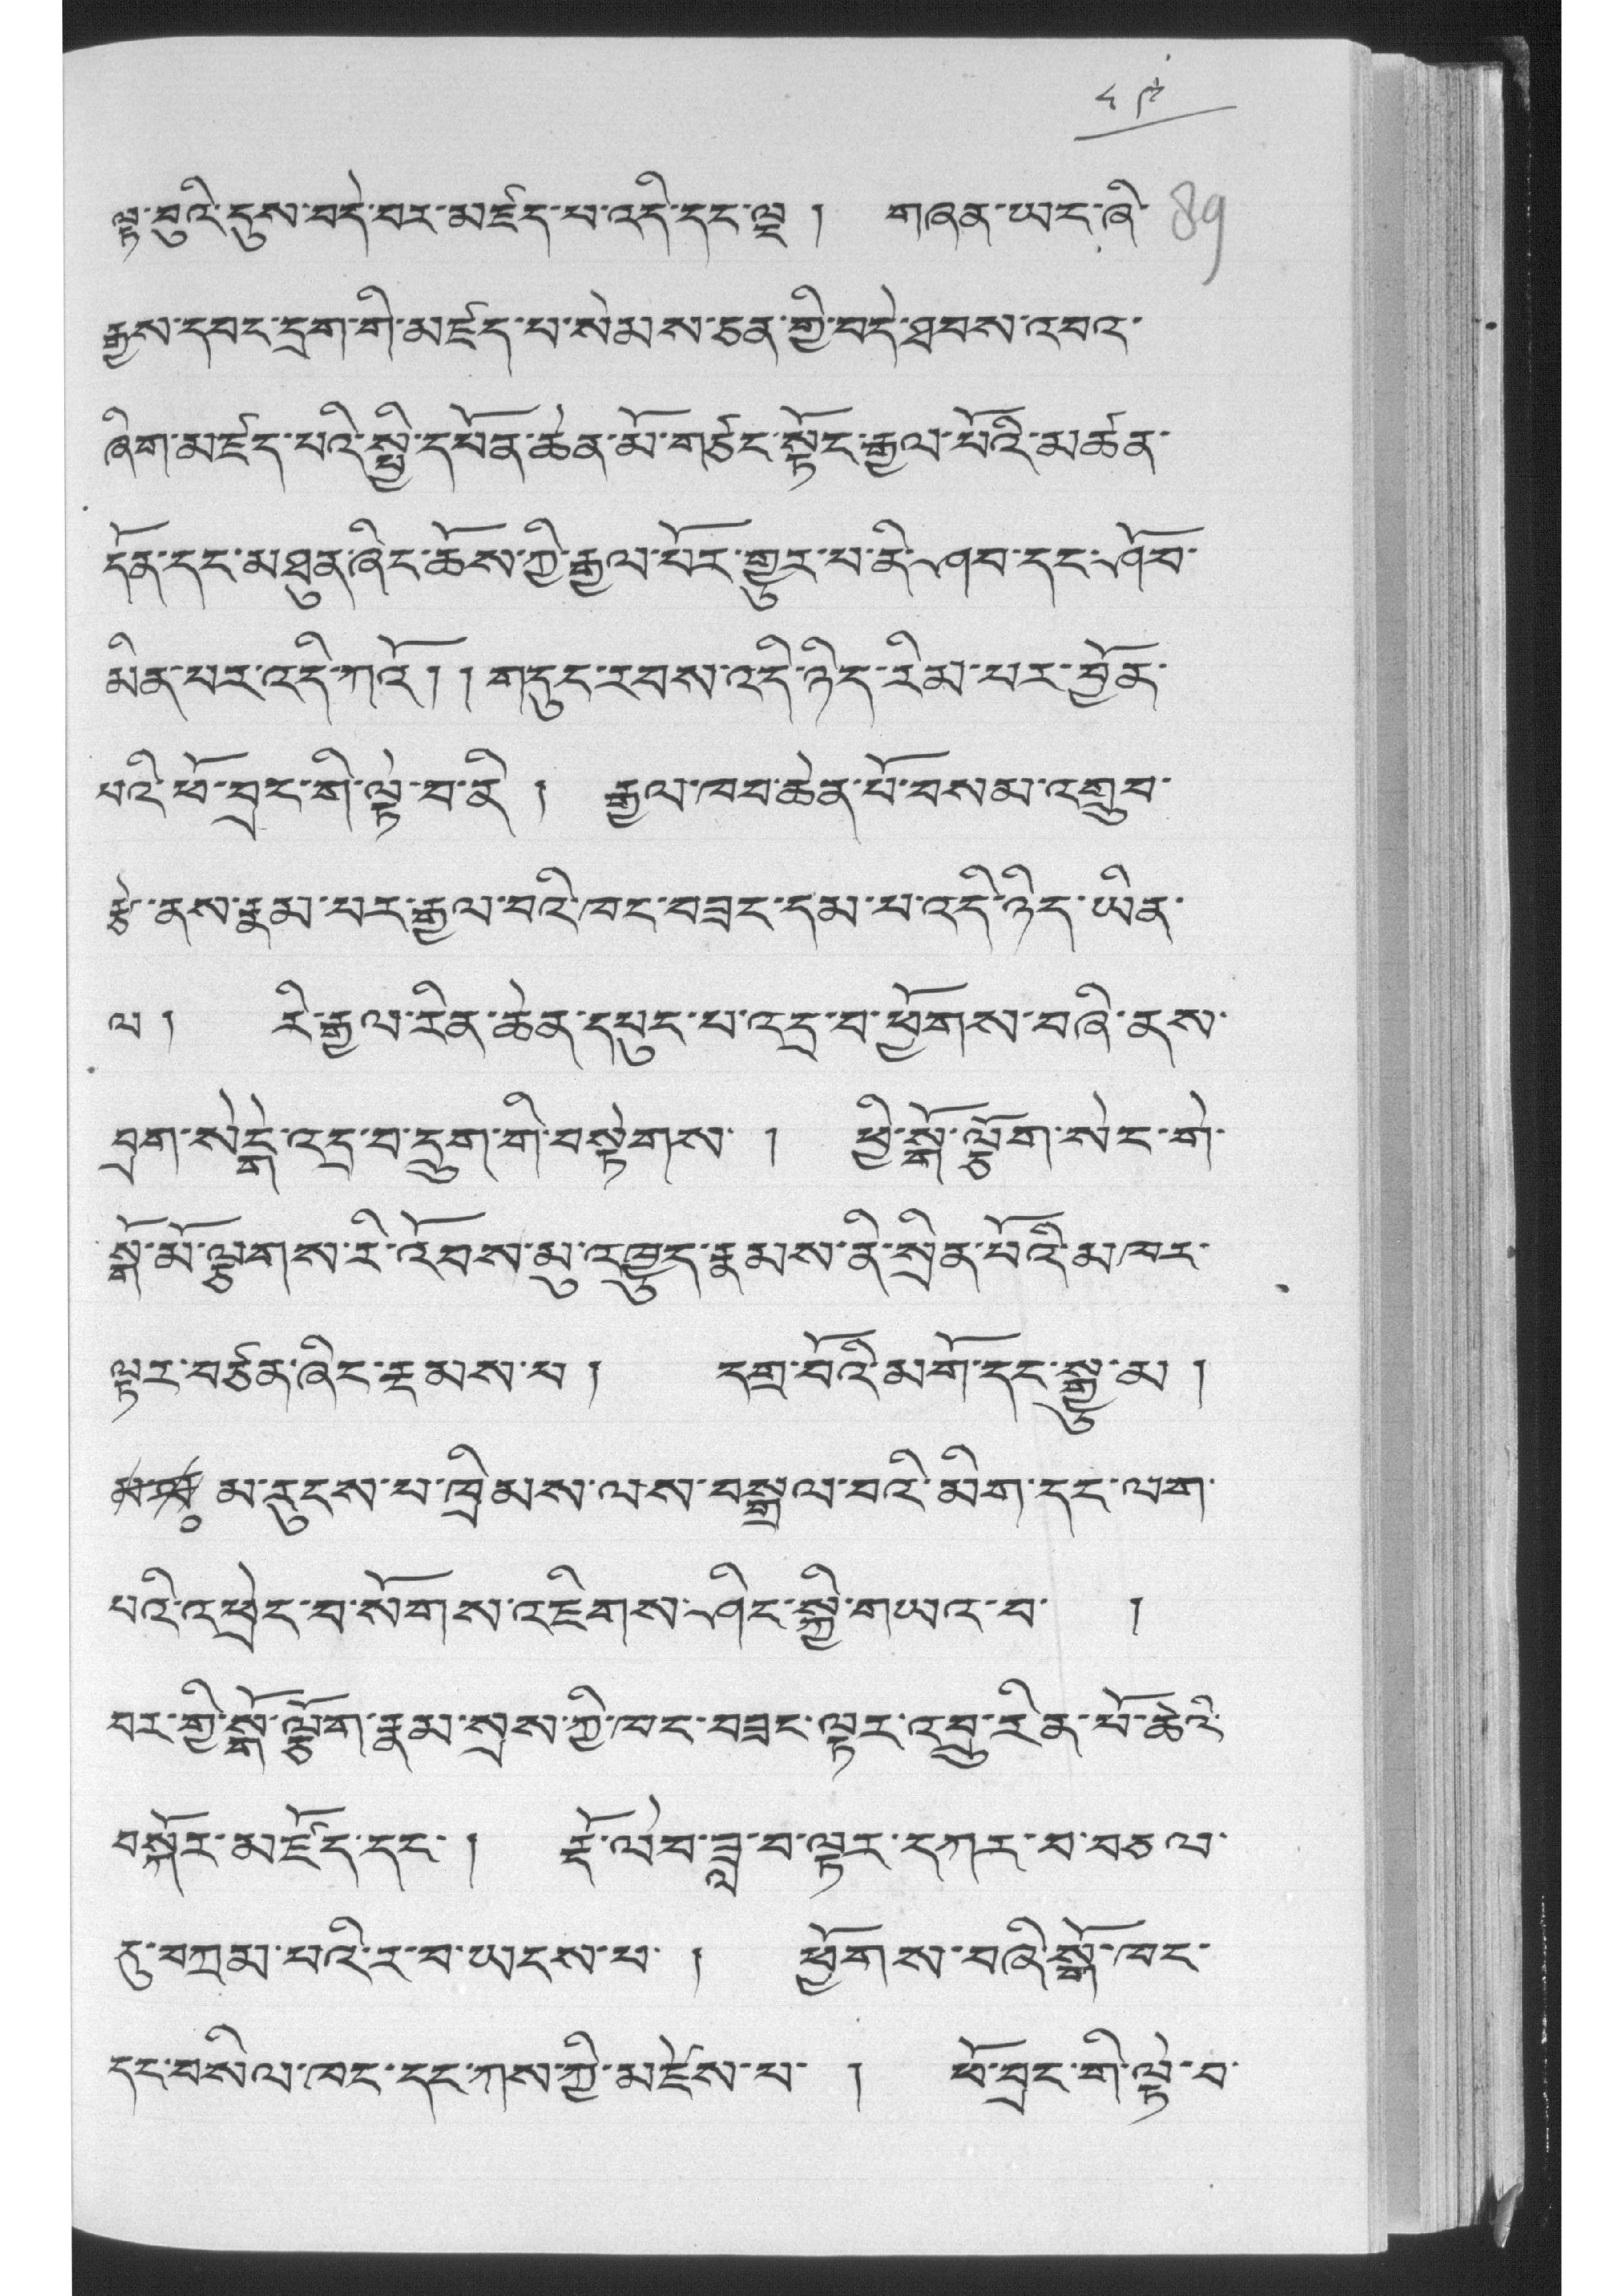 ༨༩
ལྟ་བུའི་དུས་བདེ་བར་མཛད་པ་འདི་དང་ལྔ །  གཞན་ཡང་ཞི་ 89
རྒྱས་དབང་དྲག་གི་མཛད་པ་སེམས་ཅན་གྱི་བདེ་ཐབས་འབའ་
ཞིག་མཛད་པའི་སྤྱི་དཔོན་ཆེན་མོ་གཙང་སྟོད་རྒྱལ་པོའི་མཚན་
དོན་དང་མཐུན་ཞིང་ཆོས་ཀྱི་རྒྱལ་པོར་གྱུར་པ་ནི་ཤབ་དང་ཤོབ་
མིན་པར་འདི་ཀའོ། །གདུང་རབས་འདི་ཉིད་རིམ་པར་བྱོན་
པའི་ཕོ་བྲང་གི་ལྟེ་བ་ནི །  རྒྱལ་ཁབ་ཆེན་པོ་བསམ་འགྲུབ་
རྩེ་ནས་རྣམ་པར་རྒྱལ་བའི་ཁང་བཟང་དམ་པ་འདི་ཉིད་ཡིན་
ལ །  རི་རྒྱལ་རིན་ཆེན་དཔུང་པ་འདྲ་བ་ཕྱོགས་བཞི་ནས་
བྲག་སེངྒེ་འདྲ་བ་དྲུག་གི་བསྟེགས །  ཕྱི་སྒོ་ལྕོག་སེང་གེ་
སྒོ་མོ་ལྕགས་རི་འོབས་མུ་འཁྱུད་རྣམས་ནི་སྲིན་པོའི་མཁར་
ལྟར་བཙན་ཞིང་རྔམས་པ །  དགྲ་བོའི་མགོ་དང་སྒྱུ་མ །
མ་རུངས་པ་ཁྲིམས་ལས་བསྒྲལ་བའི་མིག་དང་ལག་
པའི་འཕྲེང་བ་སོགས་འཇིགས་ཤིང་སྐྱི་གཡའ་བ །
བར་གྱི་སྒོ་ལྕོག་རྣམ་སྲས་ཀྱི་ཁང་བཟང་ལྟར་འབྲུ་རིན་པོ་ཆེའི་
བསྐོར་མཛོད་དང །  རྡོ་ལེབ་ཟླ་བ་ལྟར་དཀར་བ་བཅལ་
དུ་བཀྲམ་པའི་ར་བ་ཡངས་པ །  ཕྱོགས་བཞི་སྒོ་ཁང་
དང་བསིལ་ཁང་དང་ཀས་ཀྱི་མཛེས་པ །  ཕོ་བྲང་གི་ལྟེ་བ་